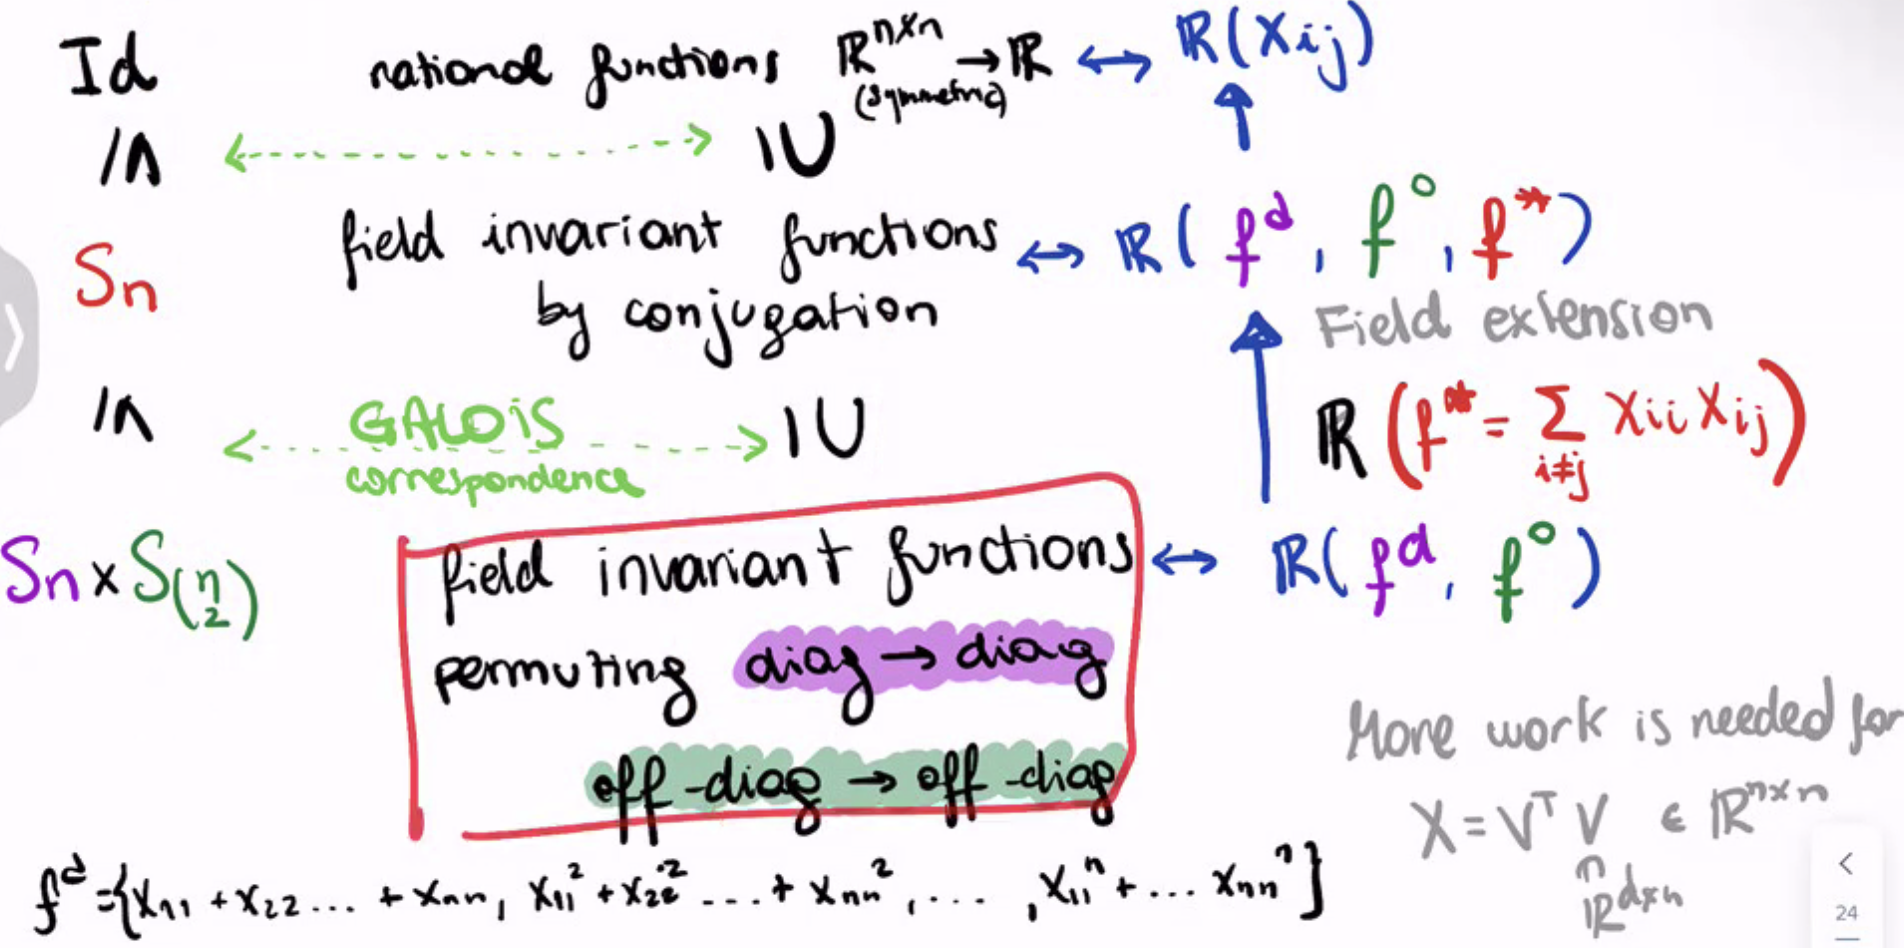 Id rational functions ℝⁿˣⁿ → ℝ ↔ ℝ(Xij)
(symmetric)
I∧ I∪
Sn field invariant functions ↔ ℝ( f^d, f^o, f^* )
by conjugation
Field extension
I∧ GALOiS I∪ ℝ( f^* = Σ Xii Xij )
correspondence i≠j
Sn × S(n 2) field invariant functions ↔ ℝ( f^d, f^o )
permuting diag → diag
off-diag → off-diag
More work is needed for
X = V^T V ∈ ℝⁿˣⁿ
∩
ℝ^d×n
f^d = {X11 + X22 ... + Xnn, X11² + X22² ... + Xnn², ...., X11ⁿ + ... Xnnⁿ}
24